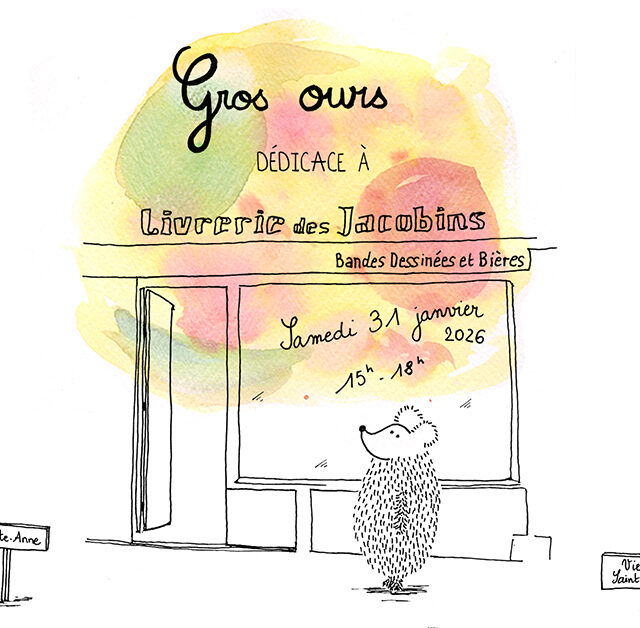 Gros ours
DÉDICACE À
Livrerie des Jacobins
Bandes Dessinées et Bières
Samedi 31 janvier
2026
15h - 18h
te-Anne
Vie
Saint